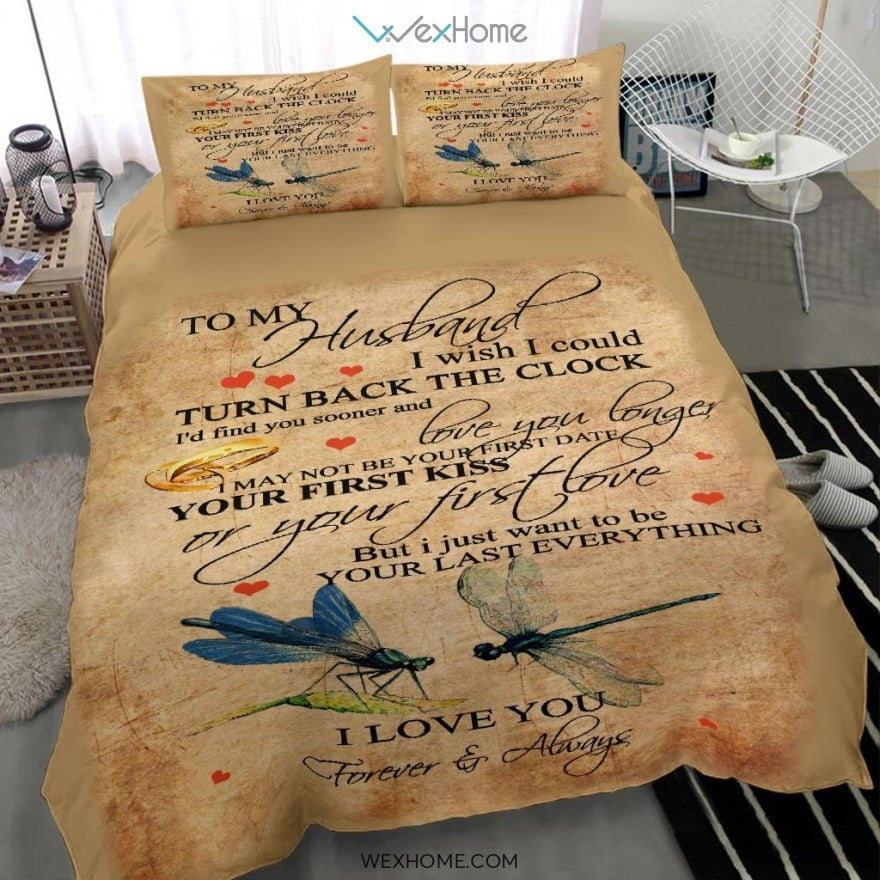 WexHome
TO MY Husband I wish I could
TURN BACK THE CLOCK
love you longer
I MAY NOT BE YOUR FIRST DATE
YOUR FIRST KISS
or your first love
But i just want to be
YOUR LAST EVERYTHING
I LOVE YOU
Forever & Always
TO MY Husband
I wish I could
TURN BACK THE CLOCK
love you longer
YOUR FIRST KISS
or your first love
But i just want to be
YOUR LAST EVERYTHING
I LOVE YOU
Forever & Always
TO MY Husband
I wish I could
TURN BACK THE CLOCK
I'd find you sooner and
love you longer
I MAY NOT BE YOUR FIRST DATE
YOUR FIRST KISS
or your first love
But i just want to be
YOUR LAST EVERYTHING
I LOVE YOU
Forever & Always
WEXHOME.COM